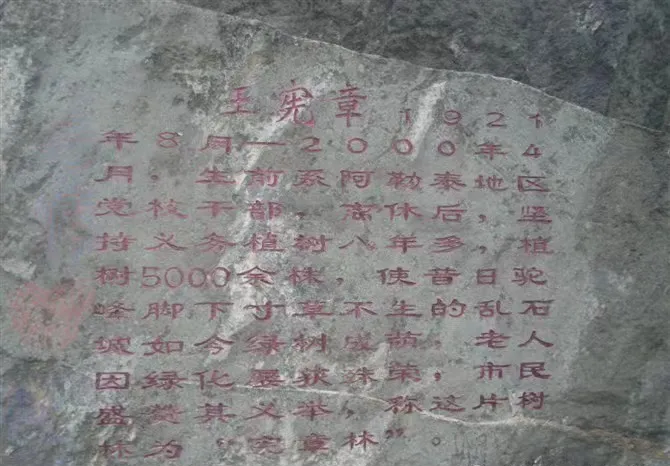 王宪章1921
年8月—2000年4
月，生前系阿勒泰地区
党校干部，离休后，坚
持义务植树八年多，植
树5000余株，使昔日驼
峰脚下寸草不生的乱石
坡如今绿树成荫，老人
因绿化屡获殊荣，市民
盛赞其义举，称这片树
林为“宪章林”。